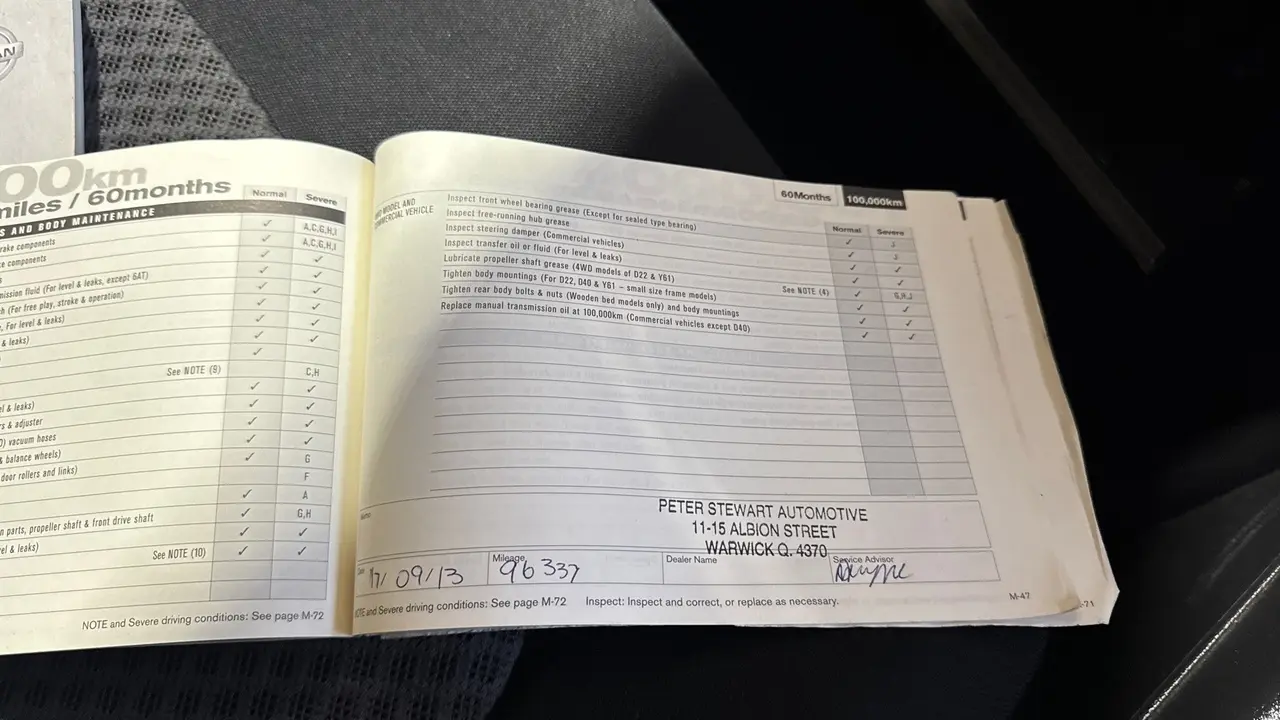 AN
00km
miles / 60months
Normal Severe
S AND BODY MAINTENANCE
rake components ✓ A,C,G,H,I
e components ✓ A,C,G,H,I
✓ ✓
mission fluid (For level & leaks, except 6AT) ✓ ✓
h (For free play, stroke & operation) ✓ ✓
, For level & leaks) ✓ ✓
& leaks) ✓ ✓
✓
See NOTE (8) C,H
✓ ✓
el & leaks) ✓ ✓
s & adjuster ✓ ✓
) vacuum hoses ✓ ✓
& balance wheels) ✓ G
door rollers and links) F
✓ A
✓ G,H
n parts, propeller shaft & front drive shaft ✓ ✓
el & leaks) See NOTE (10) ✓ ✓
NOTE and Severe driving conditions: See page M-72
60Months 100,000km
Normal Severe
MODEL AND
COMMERCIAL VEHICLE
Inspect front wheel bearing grease (Except for sealed type bearing) ✓ J
Inspect free-running hub grease ✓ J
Inspect steering damper (Commercial vehicles) ✓ ✓
Inspect transfer oil or fluid (For level & leaks) ✓ ✓
Lubricate propeller shaft grease (4WD models of D22 & Y61) See NOTE (4) ✓ G,H,J
Tighten body mountings (For D22, D40 & Y61 – small size frame models) ✓ ✓
Tighten rear body bolts & nuts (Wooden bed models only) and body mountings ✓ ✓
Replace manual transmission oil at 100,000km (Commercial vehicles except D40) ✓ ✓
PETER STEWART AUTOMOTIVE
11-15 ALBION STREET
WARWICK Q. 4370
Mileage Dealer Name Service Advisor
/09/13 96 337
NOTE and Severe driving conditions: See page M-72 Inspect: Inspect and correct, or replace as necessary.
M-47
-71